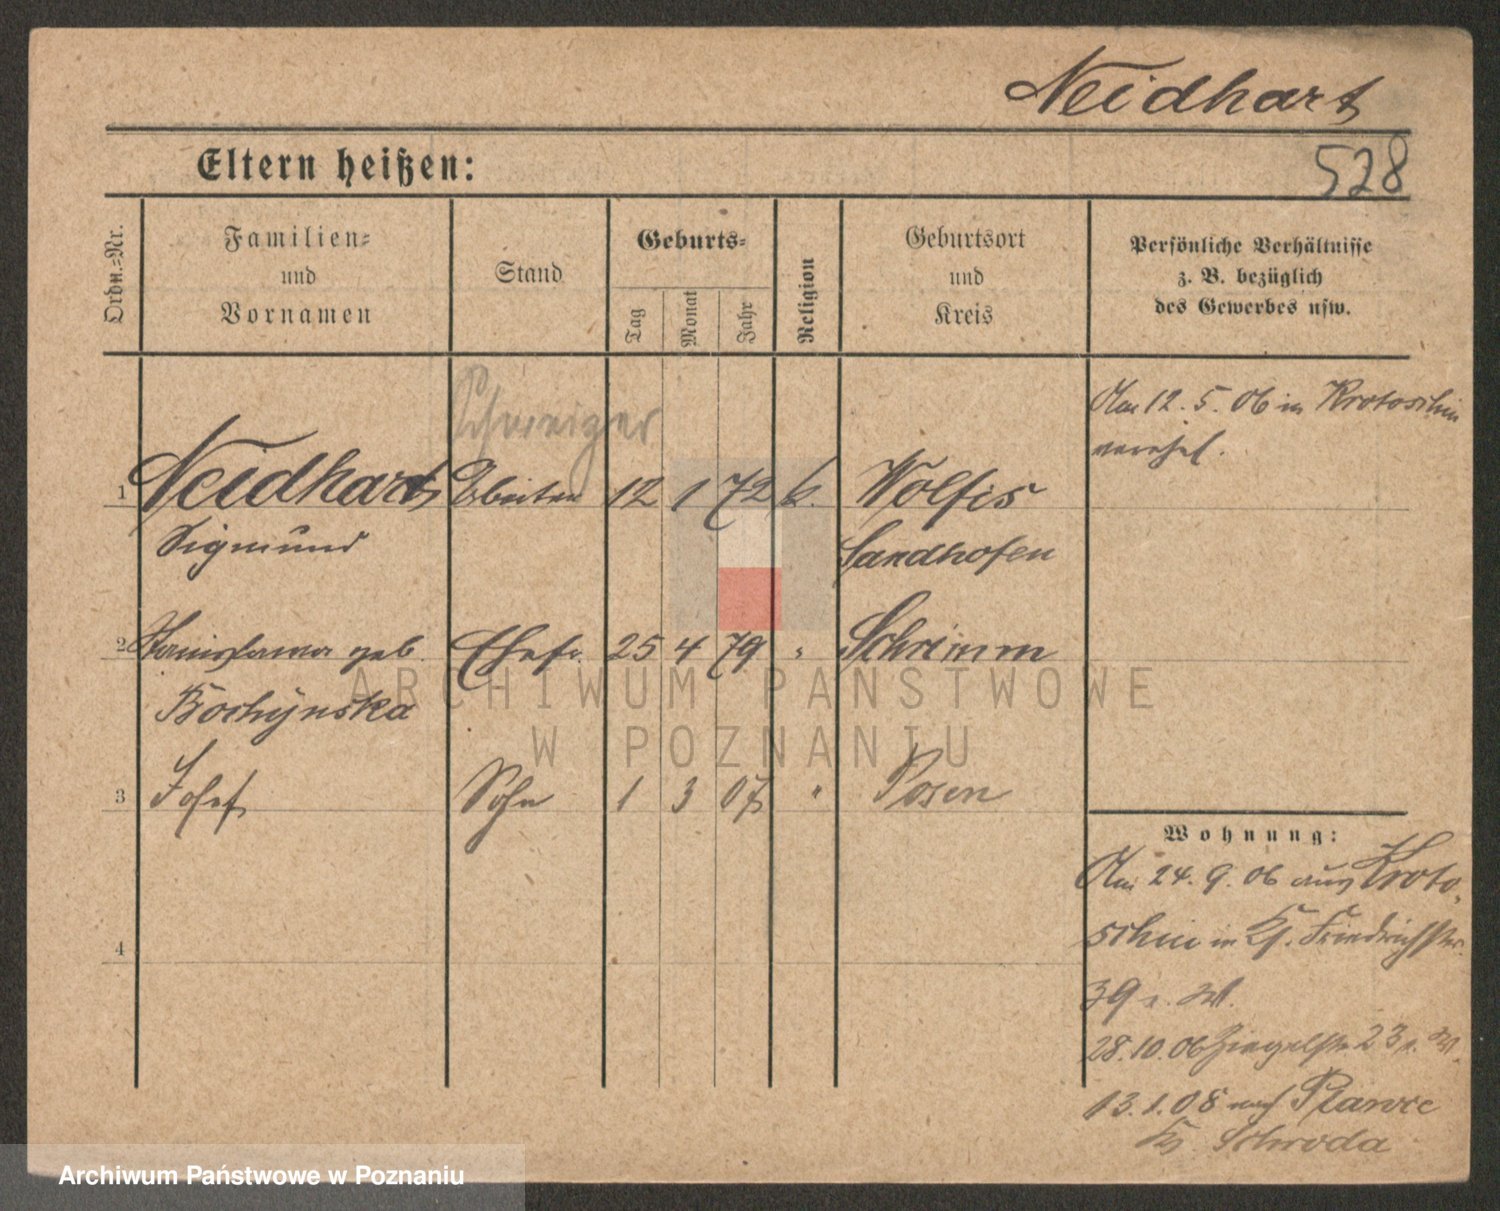 Neidhart
Eltern heißen:
528
Ordn.-Nr.
Familien-
und
Vornamen
Stand
Geburts-
Tag
Monat
Jahr
Religion
Geburtsort
und
Kreis
Persönliche Verhältnisse
z. B. bezüglich
des Gewerbes usw.
Schweizer
Am 12. 5. 06 in Krotoschin
verehel.
1 Neidhart Arbeiter 12 1 72 k. Wolfis
Sigmund Sandhofen
2 Stanislawa geb. Ehefr. 25 4 79 " Schrimm
Bochynska
3 Josef Sohn 1 3 07 " Posen
4
Wohnung:
Am 24. 9. 06 aus Kroto-
schin in Friedrichstr.
39
28. 10. 06 Ziegelstr 23
13. 1. 08 nach Plawce
Kr. Schroda
ARCHIWUM PAŃSTWOWE
W POZNANIU
Archiwum Państwowe w Poznaniu